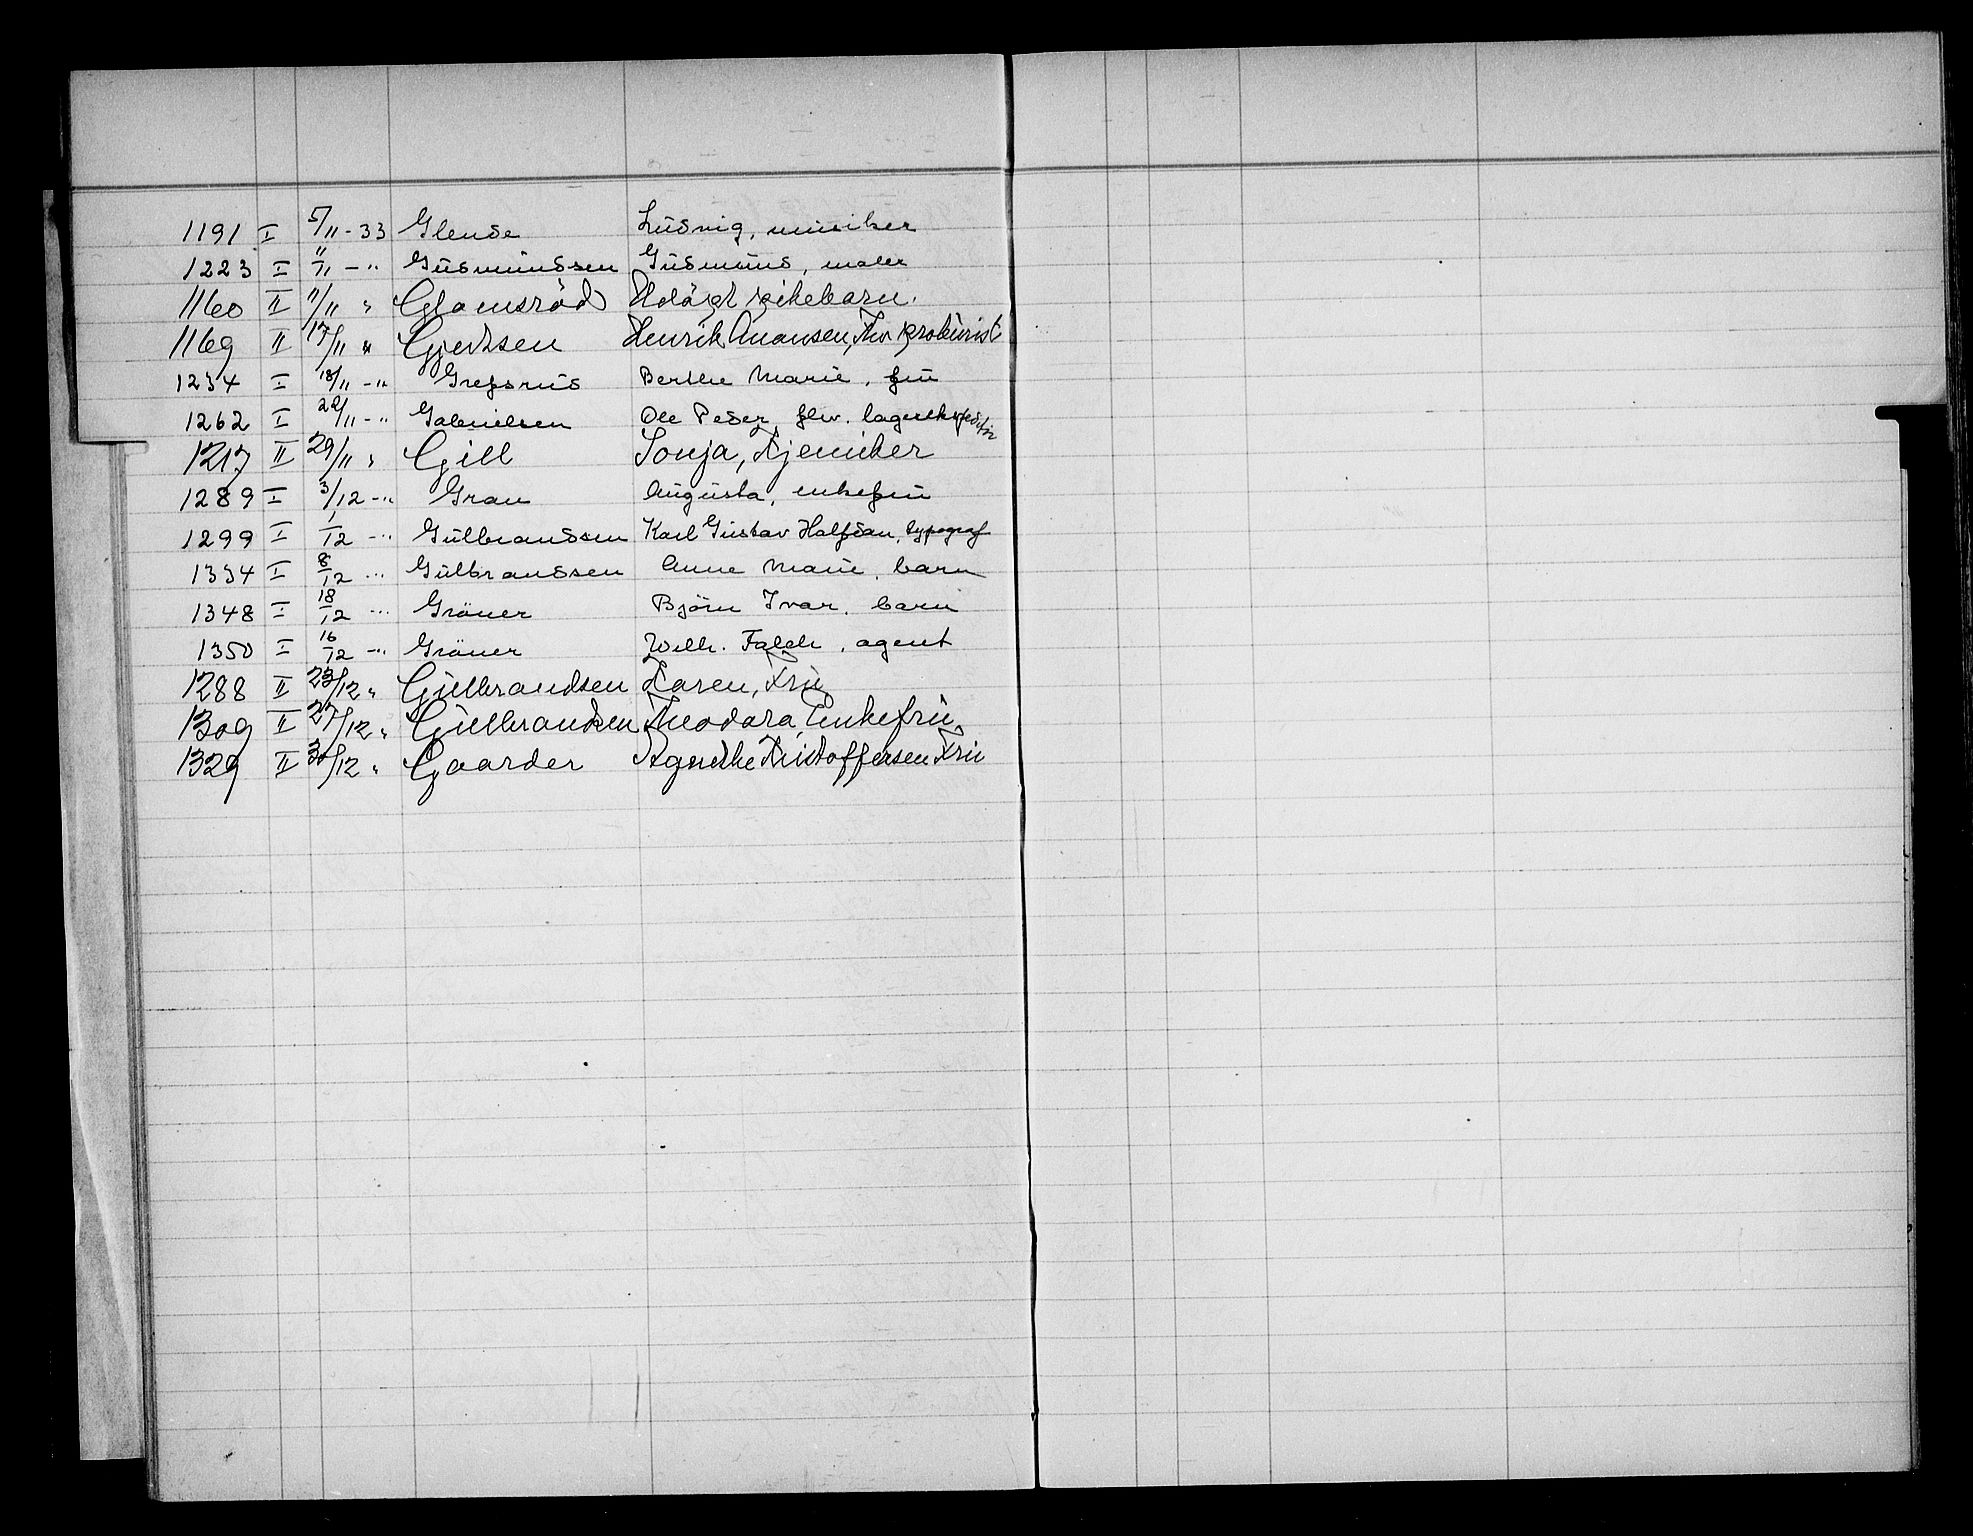 1191 I 5/11 - 33 Glende Ludvig, musiker
1223 I 11/11 - " Gudmundssen Gudmund, maler
1160 II 11/11 " Glamsröd Udöpt pikebarn.
1169 II 17/11 " Gjertsen Henrik Anansen, fhv. prokurist
1234 I 18/11 - " Grefsrud Berthe Marie, fru
1262 I 22/11 - " Gabrielsen Ole Peder, fhv.
1217 II 29/11 " Gill Sonja, Kjemiker
1289 I 3/12 - " Gran Augusta, enkefru
1299 I 1/12 - " Gulbrandsen Karl Gustav Halfdan, typograf
1334 I 8/12 - " Gulbrandsen Anne Marie, barn
1348 I 18/12 - " Gröner Björn Ivar, barn
1350 I 16/12 - " Gröner Wilh. Falch, agent
1288 II 23/12 " Gulbrandsen Karen, Fru
1309 II 27/12 " Gulbrandsen Theodora, Enkefru
1329 II 30/12 " Gaarder Agnethe Kristoffersen Fru